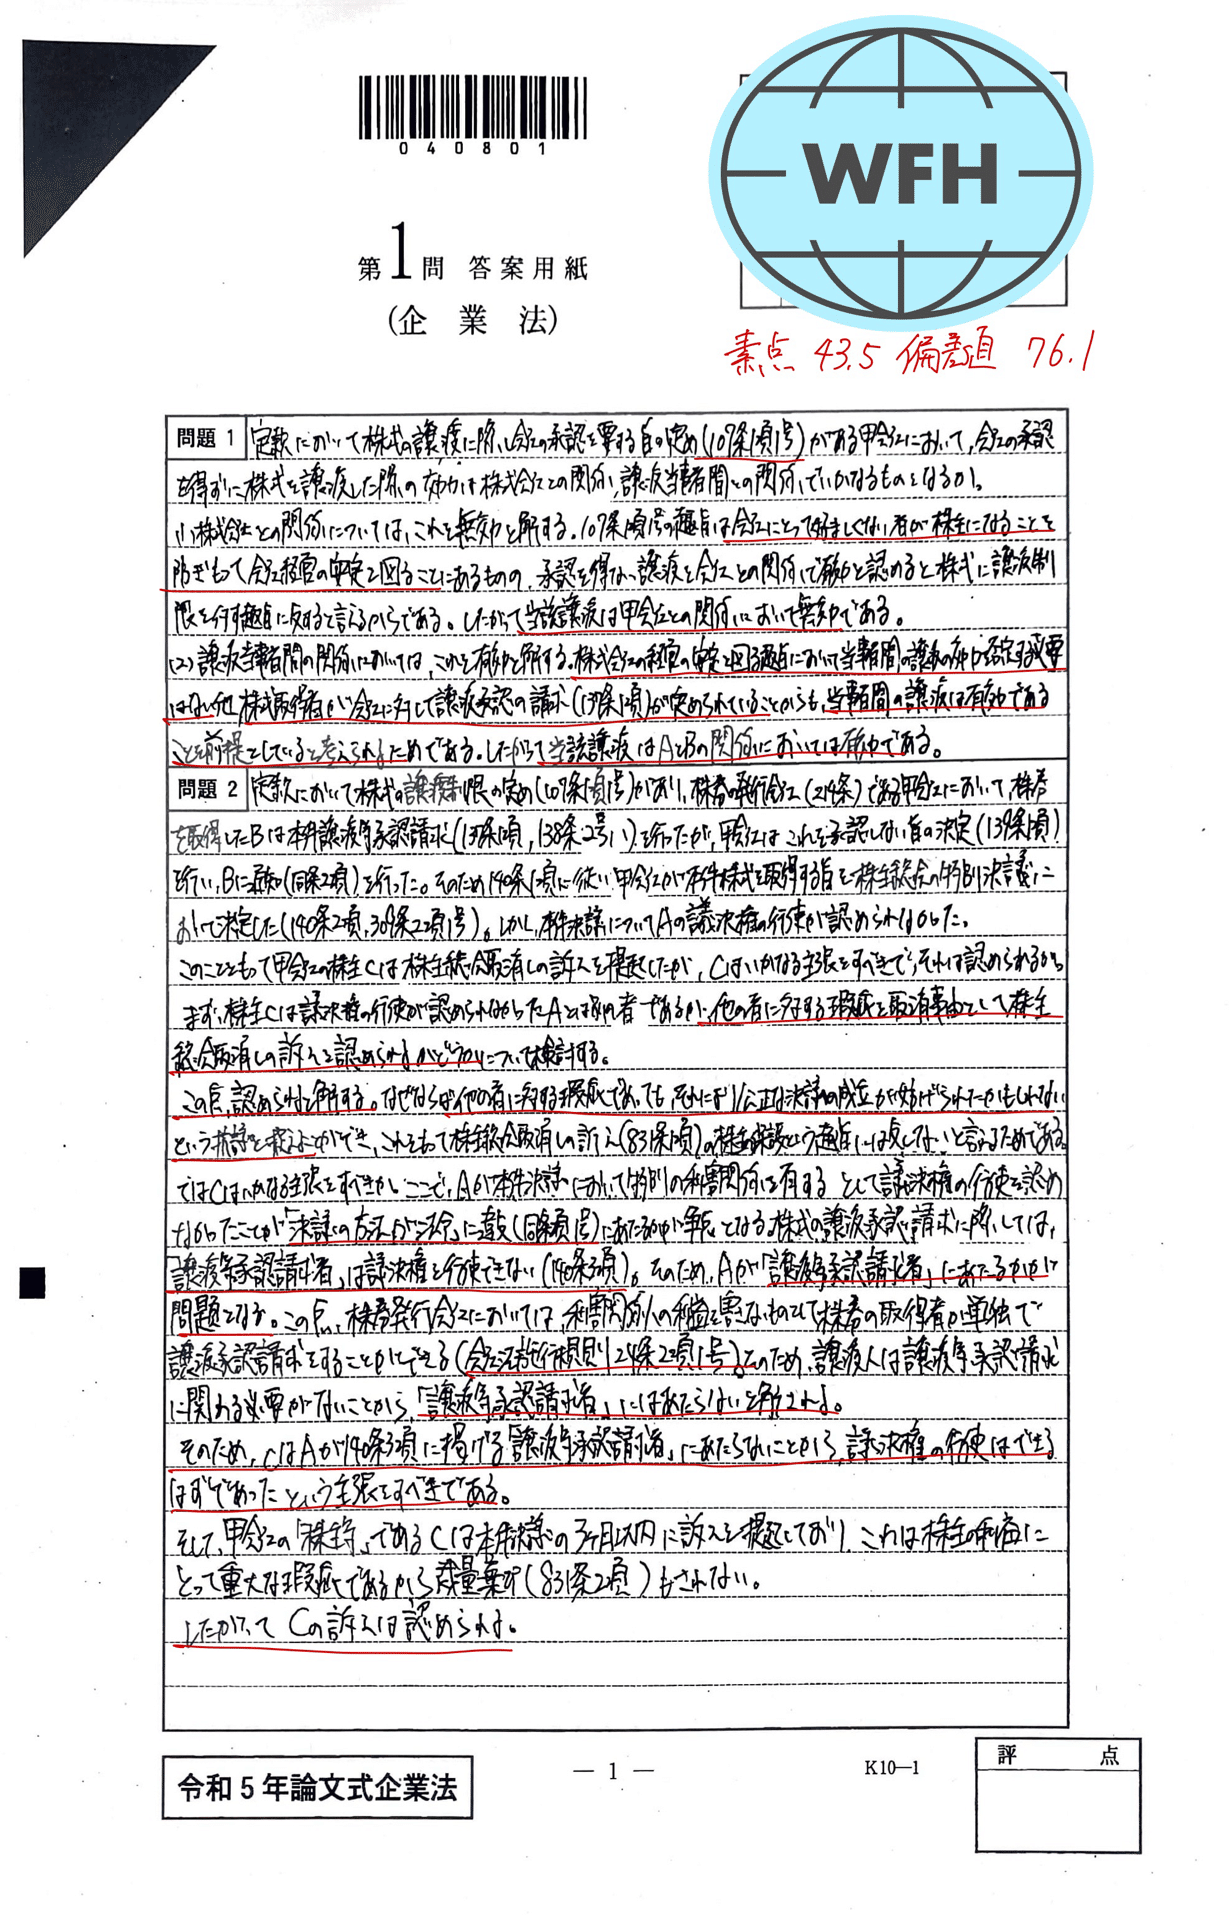 040801
WFH
第1問 答案用紙
(企業法)
素点 43.5 偏差値 76.1
問題1 定款において株式の譲渡に際し会社の承認を要する旨の定め(107条1項1号)がある甲会社において、会社の承認
を得ずに株式を譲渡した際の効力は株式会社との関係、譲渡当事者間との関係でいかなるものとなるか。
(1)株式会社との関係については、これを無効と解する。107条1項1号の趣旨は会社にとって好ましくない者が株主になることを
防ぎもって会社経営の安定を図ることにあるものの、承認を得ない譲渡を会社との関係で有効と認めると株式に譲渡制
限を付す趣旨に反すると言えるからである。したがって当該譲渡は甲会社との関係において無効である。
(2)譲渡当事者間の関係においては、これを有効と解する。株式会社の経営の安定を図る趣旨において当事者間の譲渡の効力を否定する必要
はない他、株式取得者が会社に対して譲渡承認の請求(137条1項)が定められていることからも、当事者間の譲渡は有効である
ことを前提としていると考えられるためである。したがって当該譲渡はAとBの関係においては有効である。
問題2 定款において株式の譲渡制限の定め(107条1項1号)があり、株券発行会社(214条)である甲会社において、株券
を取得したBは本件譲渡等承認請求(137条1項,138条2号イ)を行ったが、甲会社はこれを承認しない旨の決定(139条1項)
を行い、Bに通知(同条2項)を行った。そのため140条1項に従い甲会社が本件株式を取得する旨を株主総会の特別決議に
おいて決定した(140条2項,309条2項1号)。しかし、本件決議についてAの議決権の行使が認められなかった。
このことをもって甲会社の株主Cは株主総会取消しの訴えを提起したが、Cはいかなる主張をすべきで、それは認められるか。
まず、株主Cは議決権の行使が認められなかったAとは別の者であるが、他の者に対する瑕疵を取消事由として株主
総会取消しの訴えを認められるかどうかについて検討する。
この点、認められると解する。なぜならば他の者に対する瑕疵であっても、それにより公正な決議の成立が妨げられたかもしれない
という抗議を訴えることができ、これをもって株主総会取消しの訴え(831条1項)の株主保護という趣旨には反しないと言えるためである。
ではCはいかなる主張をすべきか。ここで、Aが本件決議において特別の利害関係を有するとして議決権の行使を認め
なかったことが「決議の方法が法令」に違反(同条1項1号)にあたるかが争点となる。株式の譲渡承認請求に際しては、
「譲渡等承認請求者」は議決権を行使できない(140条3項)。そのため、Aが「譲渡等承認請求者」にあたるかが
問題となる。この点、株券発行会社においては、利害関係人の利益を害さないものとして株券の取得者が単独で
譲渡承認請求をすることができる(会社法施行規則24条2項1号)。そのため、譲渡人は譲渡等承認請求
に関わる必要がないことから、「譲渡等承認請求者」にはあたらないと解される。
そのため、CはAが140条3項に掲げる「譲渡等承認請求者」にあたらないことから、議決権の行使はできる
はずであったという主張をすべきである。
そして、甲会社の「株主等」であるCは本件決議の3ヶ月以内に訴えを提起しており、これは株主の利益に
とって重大な瑕疵であるから裁量棄却(831条2項)もされない。
したがって Cの訴えは認められる。
令和5年論文式企業法
― 1 ―
K10―1
評 点